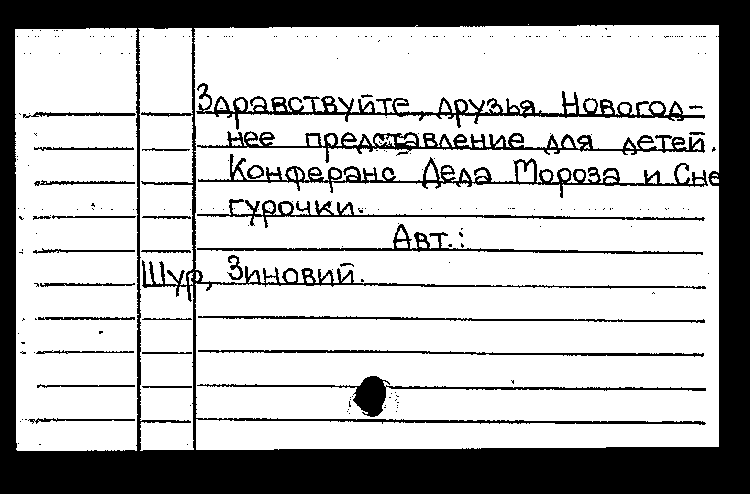 Здравствуйте, друзья. Новогод-
нее представление для детей.
Конферанс Деда Мороза и Сне
гурочки.
Авт.:
Шур, Зиновий.